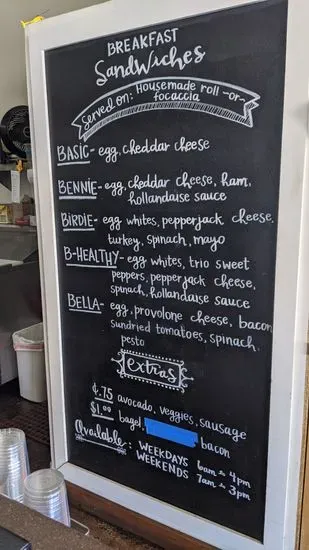 BREAKFAST
SandWiches
Served on: Housemade roll -or-
focaccia
BASIC- egg, cheddar cheese
BENNIE- egg, cheddar cheese, ham,
hollandaise sauce
BiRDiE- egg whites, pepperjack cheese,
turkey, spinach, mayo
B-HEALTHY- egg whites, trio sweet
peppers, pepperjack cheese,
spinach, hollandaise sauce
BELLA- egg, provolone cheese, bacon
sundried tomatoes, spinach,
pesto
extras
¢.75 avocado, veggies, sausage
$1.00 bagel, bacon
Available: WEEKDAYS 6am - 4pm
WEEKENDS 7am - 3pm